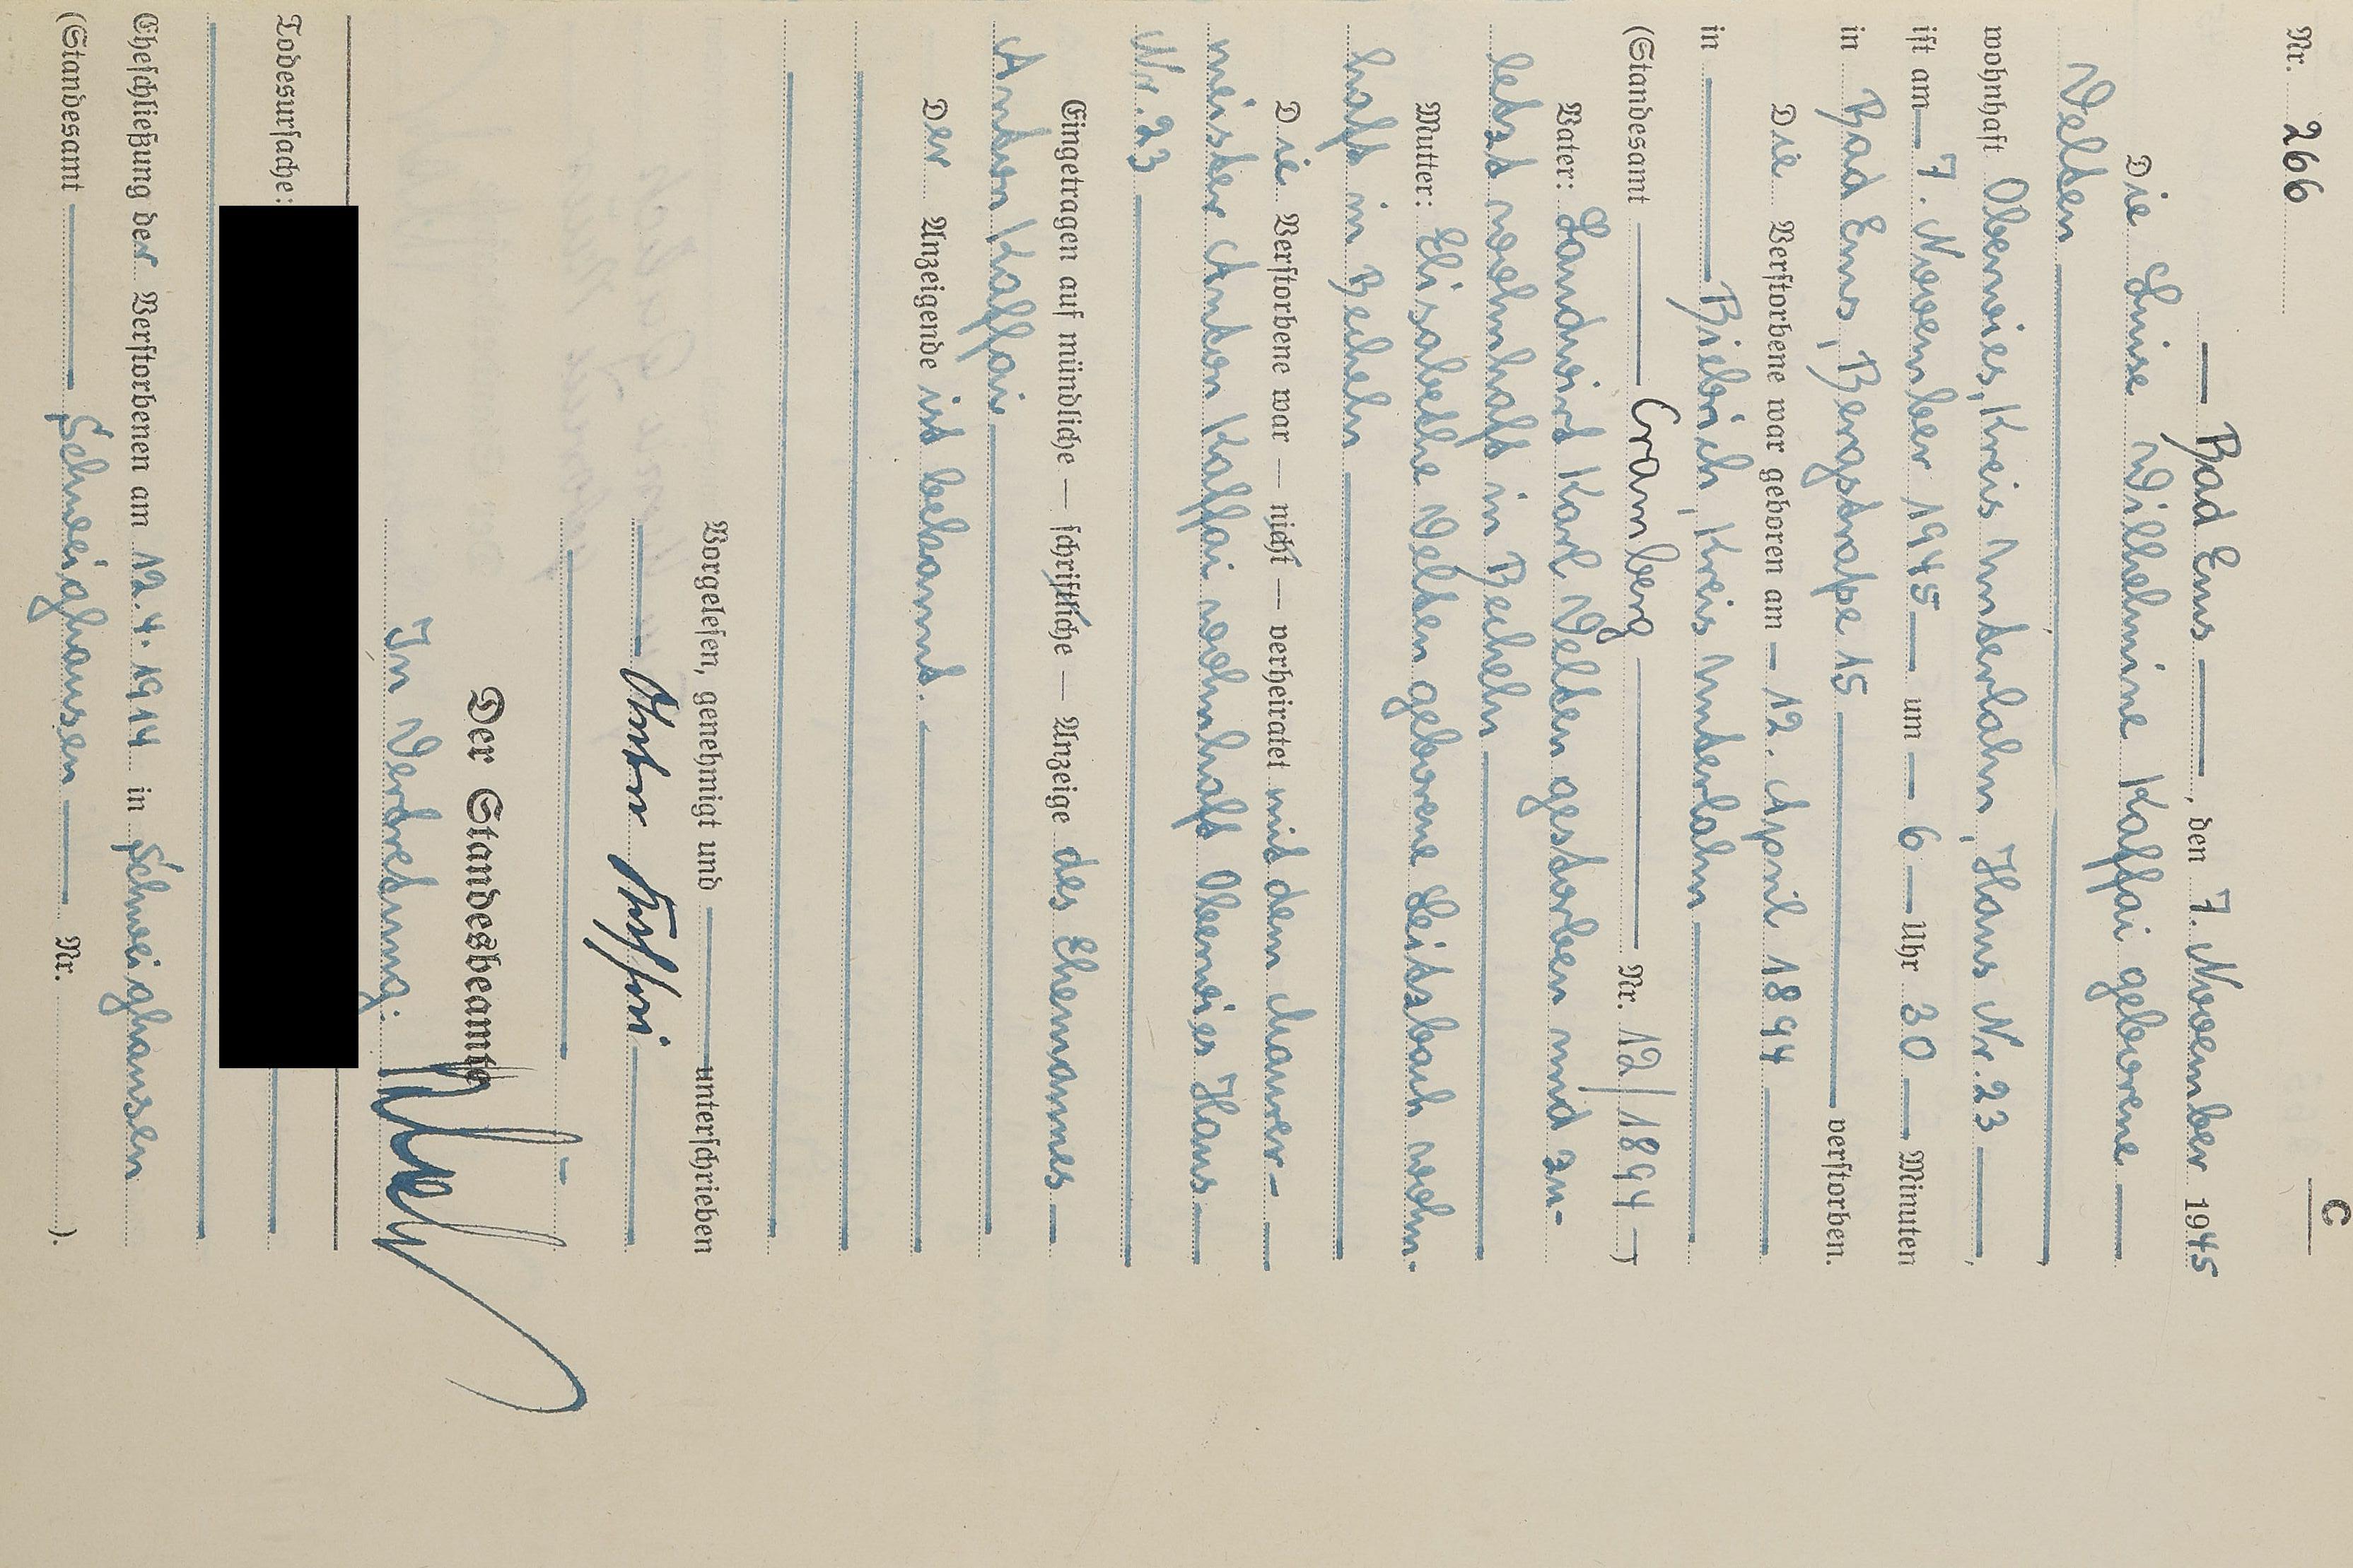 C
Nr. 266
Bad Ems, den 7. November 1945
Die Luise Wilhelmine Kaffai geborene
Velten
wohnhaft Oberwies, Kreis Unterlahn, Haus Nr. 23
ist am 7. November 1945 um 6 Uhr 30 Minuten
in Bad Ems, Bergstraße 15 verstorben.
Die Verstorbene war geboren am 12. April 1894
in Biebrich, Kreis Unterlahn
(Standesamt Cramberg Nr. 12/1894)
Vater: Landwirt Karl Velten gestorben und zu-
letzt wohnhaft in Becheln
Mutter: Elisabethe Velten geborene Leitzbach wohn-
haft in Becheln
Die Verstorbene war — nicht — verheiratet mit dem Maurer-
meister Anton Kaffai wohnhaft Oberwies Haus
Nr. 23
Eingetragen auf mündliche — schriftliche — Anzeige des Ehemannes
Anton Kaffai
Der Anzeigende ist bekannt.
Vorgelesen, genehmigt und unterschrieben
Anton Kaffai
Der Standesbeamte
In Vertretung:
Todesursache:
Eheschließung der Verstorbenen am 12.4.1914 in Schweighausen
(Standesamt Schweighausen Nr. ).